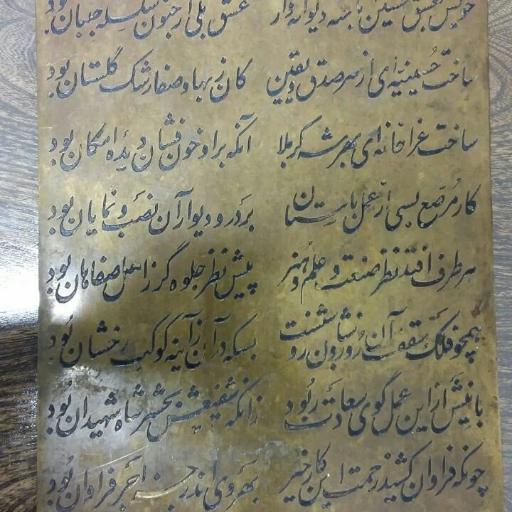 خویش بعشق حسین بسته دیوانه وار عشق بلی از جنون سلسله جنبان بود
ساخت حسینیه‌ای از سر صدق و یقین کان ز بها و صفا رشک گلستان بود
ساخت عزاخانه‌ای بهر شه کربلا آنکه بر او خون فشان دیده امکان بود
کار مرصع بسی از عمل باستان بر در و دیوار آن نصب و نمایان بود
هر طرف افتد نظر صنعت و علم و هنر پیش نظر جلوه گر ز اهل صفاهان بود
همچو فلک سقف آن روز و شبان بسکه در آن آینه کوکب رخشان بود
بانیش از این عمل گوی سعادت ربود زانکه شفیعش بحشر شاه شهیدان بود
چونکه فراوان کشید زحمت این کار خیر بهر وی اندر جزا اجر فراوان بود